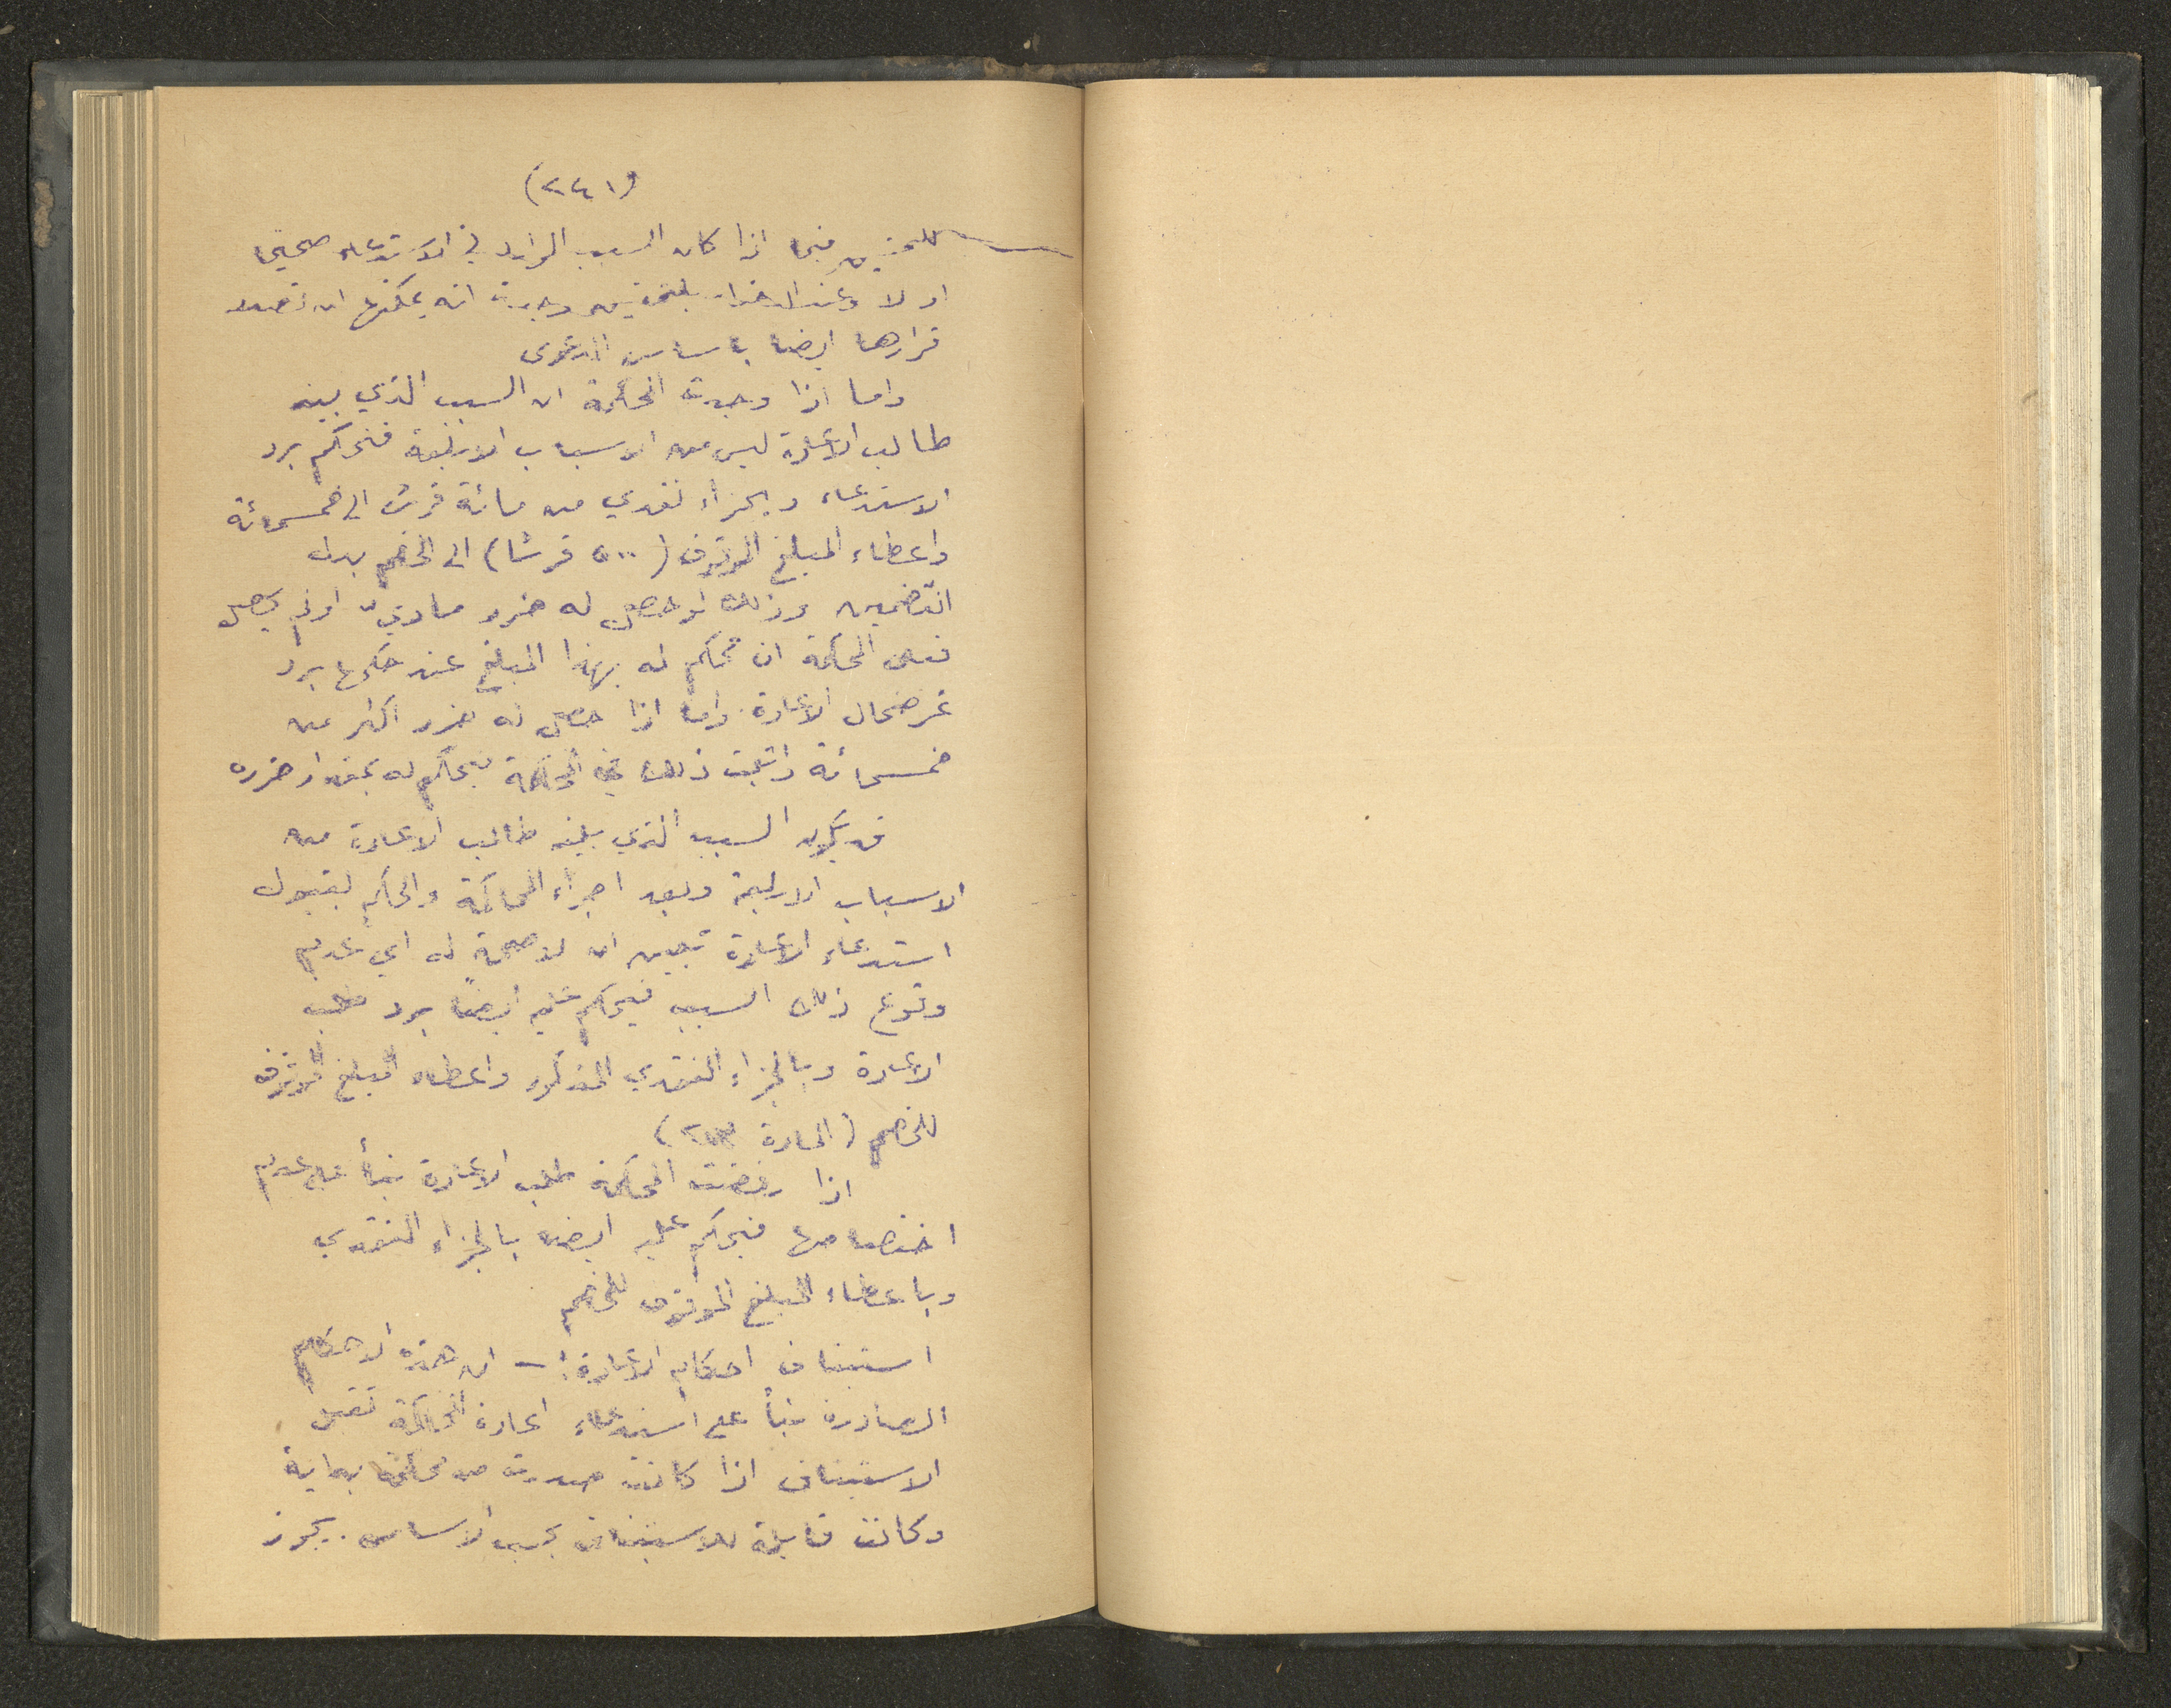 (٢٤١)
فيما اذا كان السبب الوارد في الاستدعاء صحيحا
او لا وعند وجدت انه يمكنها ان تصدر
قرارها ايضا باساس الدعوى
واما اذا وجدت المحكمة ان السبب الذي بينه
طالب الاعادة ليس من الاسباب الاربعة فتحكم برد
الاستدعاء وبجزاء نقدي من مائة قرش الى خمسمائة
واعطاء المبلغ الموقوف (٥٠٠ قرشا) الى الخصم بدل
التضمين وذلك لو حصل له ضرر مادي او لم يحصل
فعلى المحكمة ان تحكم له بهذا المبلغ عند حكمها برد
عرضحال الاعادة واما اذا حصل له ضرر اكثر من
خمسمائة واثبت ذلك في المحكمة فيحكم له بمقدار ضرره
قد يكون السبب الذي بينه طالب الاعادة من
الاسباب الاربعة وبعد اجراء المحاكمة والحكم بقبول
استدعاء الاعادة تبين ان لا صحة له اي عدم
وقوع ذلك السبب فيحكم عليه ايضاً برد طلب
الاعادة وبالجزاء النقدي المذكور واعطاء المبلغ الموقوف
للخصم (المادة)
اذا رفضت المحكمة طلب الاعادة بناءً على عدم
اختصاصها فيحكم عليه ايضا بالجزاء النقدي
وباعطاء المبلغ الموقوف للخصم
استيناف احكام الاعادة :— ان هذه الاحكام
الصادرة بناءً على استدعاء اعادة المحاكمة تقبل
الاستيناف اذا كانت صدرت من محكمة بداية
وكانت قابلة للاستيناف بحسب الاساس . يجوز